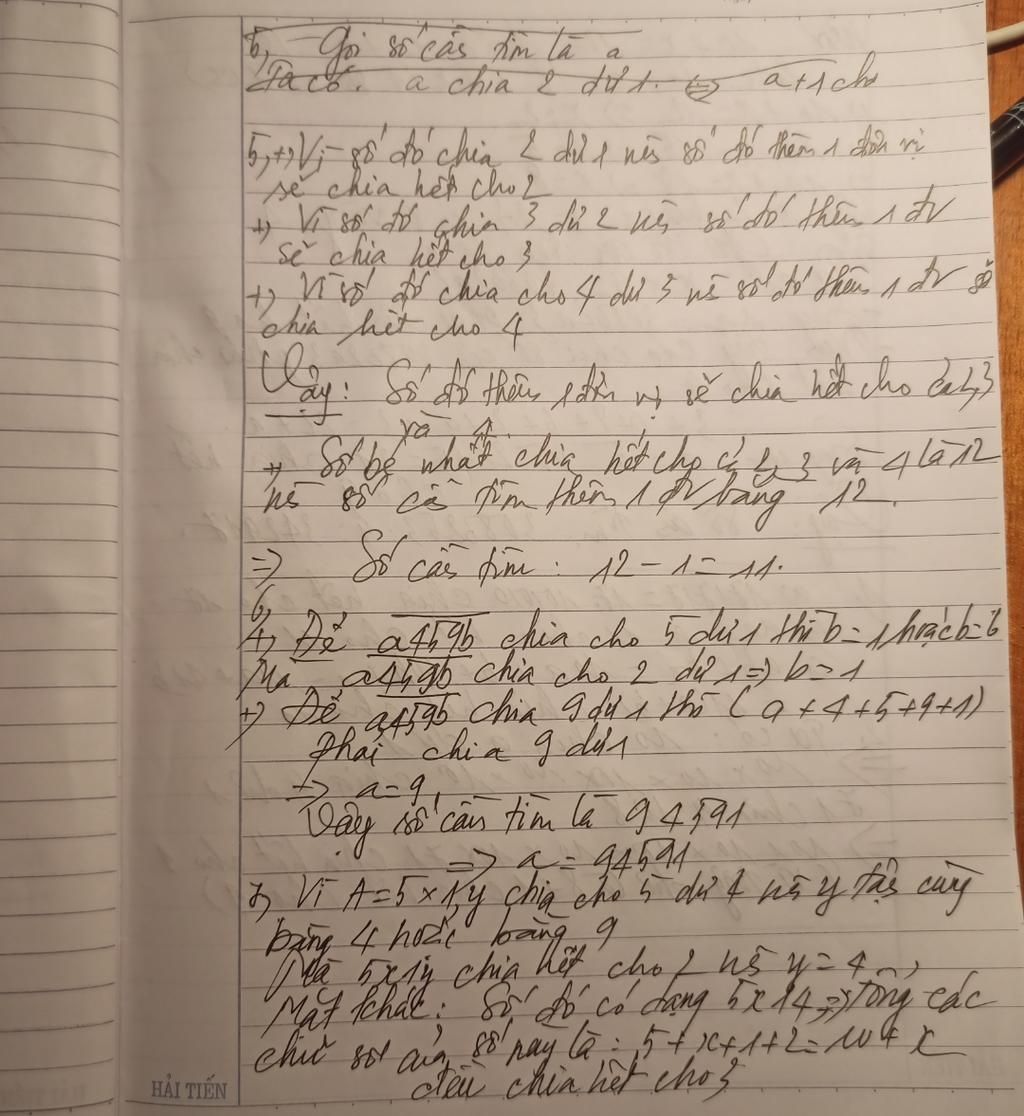 5, Gọi số cần tìm là a
Ta có. a chia 2 dư 1. ⇔ a+1 ch
5, +, Vì số đó chia 2 dư 1 nên số đó thêm 1 đơn vị
sẽ chia hết cho 2
+, Vì số đó chia 3 dư 2 nên số đó thêm 1 đv
sẽ chia hết cho 3
+, Vì số đó chia cho 4 dư 3 nê số đó thêm 1 đv sẽ
chia hết cho 4
Vậy: Số đó thêm 1 đơn vị sẽ chia hết cho cả 2, 3
và 4.
+, Số bé nhất chia hết cho cả 2, 3 và 4 là 12
nê số cần tìm thêm 1 đv bằng 12.
=> Số cần tìm: 12 - 1 = 11.
6,
+, Để a459b chia cho 5 dư 1 thì b = 1 hoặc b = 6
Mà a459b chia cho 2 dư 1 => b = 1
+, Để a459b chia 9 dư 1 thì (a + 4 + 5 + 9 + 1)
phải chia 9 dư 1
=> a = 9,
Vậy số cần tìm là 94591
=> a = 94591
7, Vì A = 5x1y chia cho 5 dư 4 nên y tận cùng
bằng 4 hoặc bằng 9
Mà 5x1y chia hết cho 2 nên y = 4
Mặt khác: Số đó có dạng 5x14 => tổng các
chữ số của số này là: 5 + x + 1 + 2 = 10 + x
đều chia hết cho 3
HẢI TIẾN